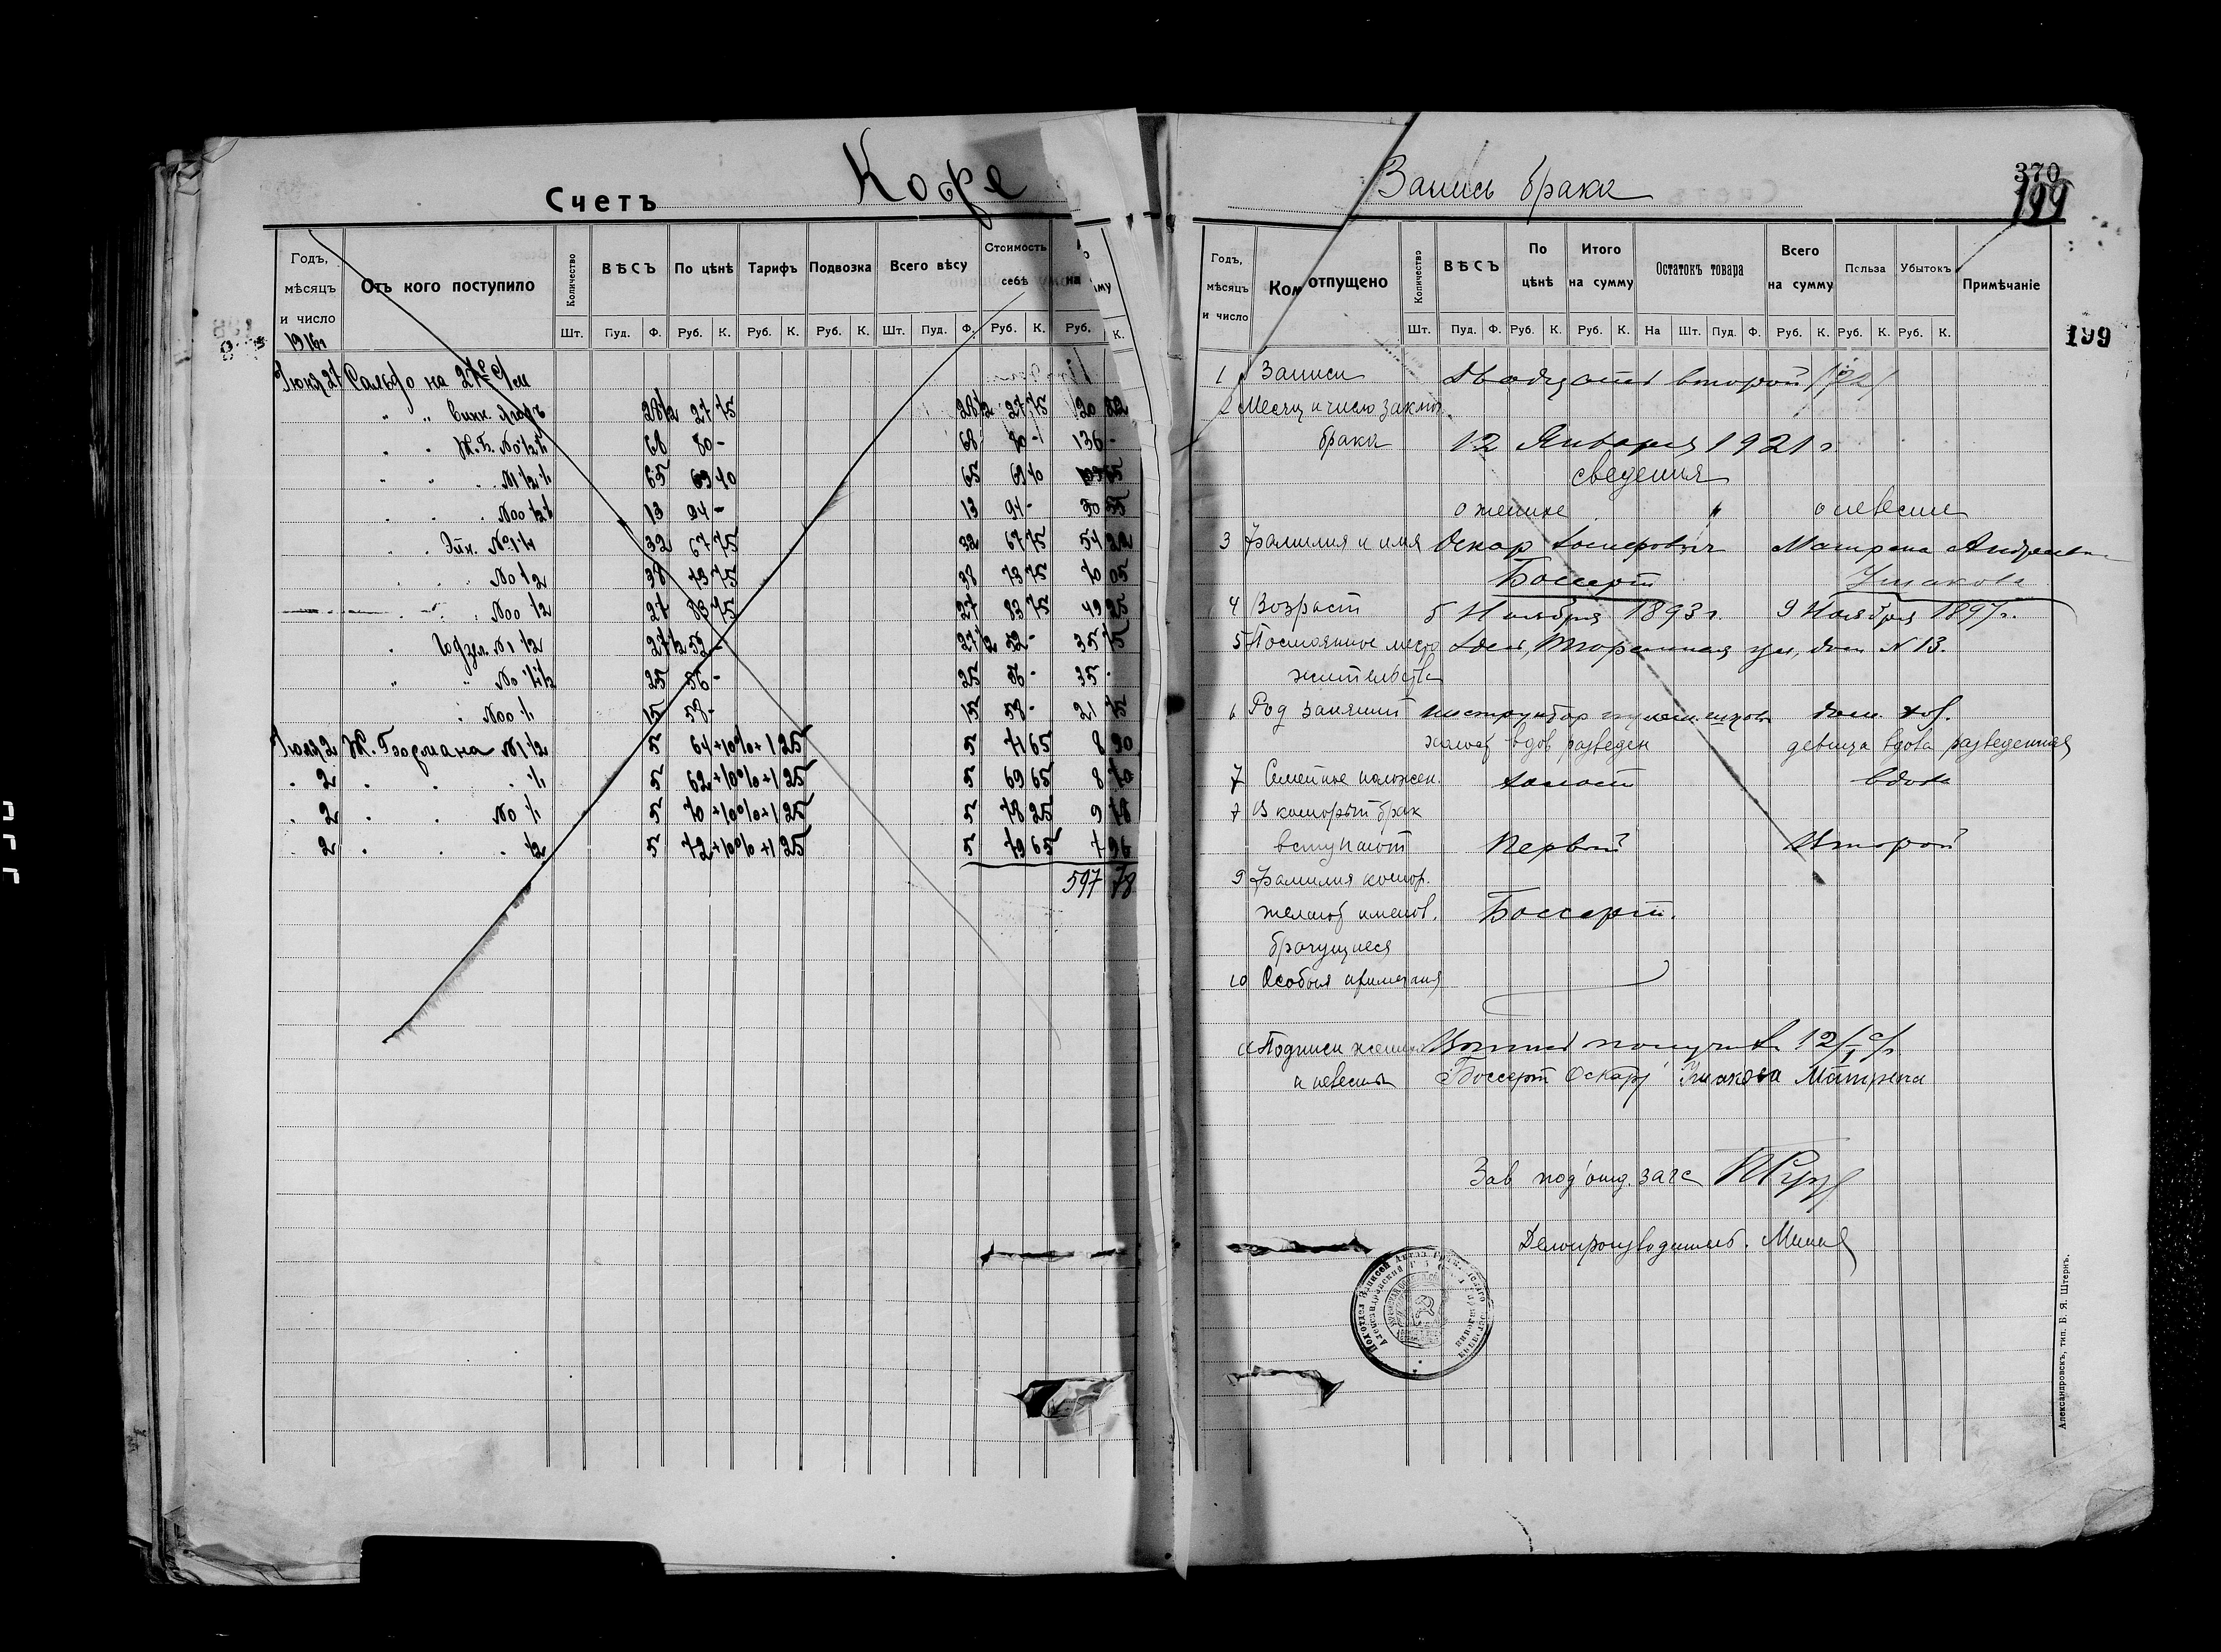 Счетъ Кофе
Годъ, мѣсяцъ и число
Отъ кого поступило
Количество
ВѢСЪ
По цѣнѣ
Тарифъ
Подвозка
Всего вѣсу
Стоимость себѣ
на
Шт. Пуд. Ф. Руб. К. Руб. К. Руб. К. Шт. Пуд. Ф. Руб. К. Руб. К.
1916г
Июня 27 Сальдо на 27
28 1/2 27 75 28 1/2 27 75 20 82
68 80 - 68 80 - 136 -
№1 1/2 65 69 40 65 69 40
№00 13 94 - 13 94 - 30 55
№1 32 67 75 32 67 75 54 22
№0 1/2 38 73 75 38 73 75 70 05
№00 1/2 27 83 75 27 83 75 49 25
№1 1/2 27 1/2 52 - 27 1/2 52 - 35 75
№0 25 56 - 25 56 - 35 -
№00 1/1 15 58 - 15 58 - 21 75
2 Ж. Бормана №1 1/2 5 64 +10%+1 25 5 71 65 8 90
2 1/1 5 62 +10%+1 25 5 69 65 8 70
2 №0 1/1 5 70 +10%+1 25 5 78 25 9 78
2 1/2 5 72 +10%+1 25 5 79 65 7 96
597 78
Запись брака
370
199
Годъ, мѣсяцъ и число
Ком отпущено
Количество
ВѢСЪ
По цѣнѣ
Итого на сумму
Остатокъ товара
Всего на сумму
Польза
Убытокъ
Примѣчаніе
Шт. Пуд. Ф. Руб. К. Руб. К. На Шт. Пуд. Ф. Руб. К. Руб. К. Руб. К.
199
1 Записи Двадцать второй /22/
2 Месяц и число заключ.
брака 12 Января 1921 г.
сведения
о женихе " о невесте
3 Фамилия и имя Оскар Матрена Андреевна
Боссерт Ушакова
4 Возраст 5 Ноября 1893 г. 9 Ноября 1897 г.
5 Постоянное место ул, дом N 13.
жительства
6 Род занятий инструктор дом. хоз.
холост вдов разведен девица вдова разведенная
7 Семейное положен. холост вдова
7 В который брак
вступают Первый Второй
9 Фамилия котор.
желают именов. Боссерт.
брачущиеся
10 Особыя примечания
11 Подписи жениха
и невесты Боссерт Оскар Ушакова Матрена
Зав под'отд. загс
Делопроизводитель.
Александровскъ, тип. Б. Я. Штернъ.